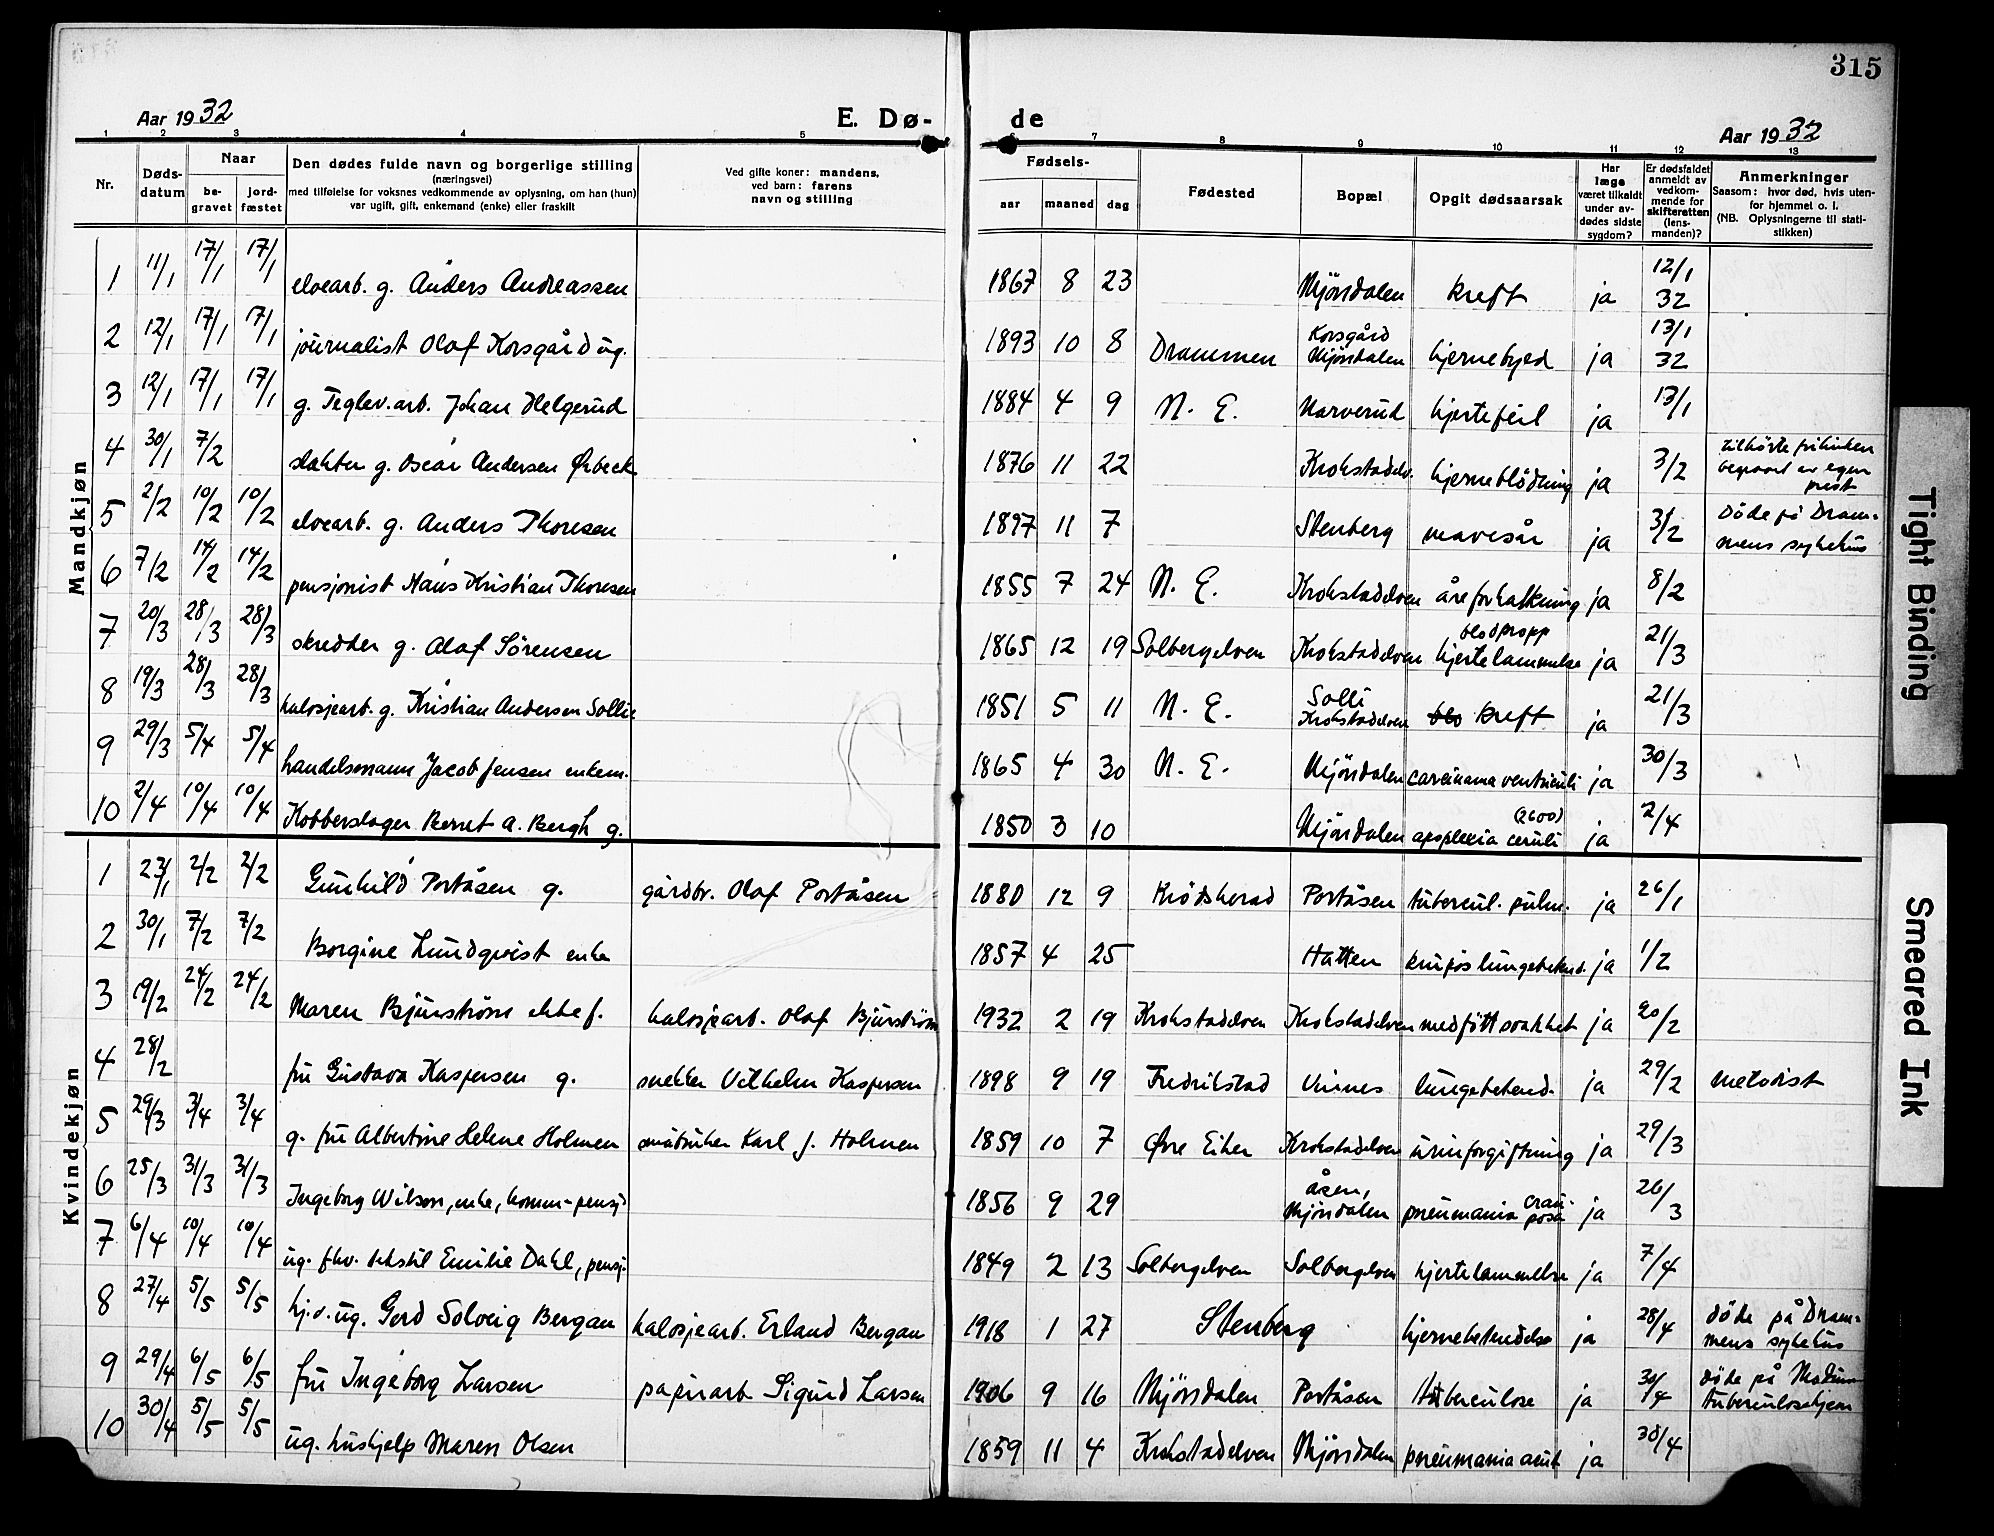 315
Aar 1932 E. Dø- de Aar 1932
1 2 3 4 5 6 7 8 9 10 11 12 13
Nr.
Døds-
datum
Naar
be-
gravet
jord-
fæstet
Den dødes fulde navn og borgerlige stilling
(næringsvei)
med tilføielse for voksnes vedkommende av oplysning, om han (hun)
var ugift, gift, enkemand (enke) eller fraskilt
Ved gifte koner: mandens,
ved barn: farens
navn og stilling
Fødsels-
aar maaned dag
Fødested
Bopæl
Opgit dødsaarsak
Har
læge
været tilkaldt
under av-
dødes sidste
sygdom?
Er dødsfaldet
anmeldt av
vedkom-
mende for
skifteretten
(lens-
manden)?
Anmerkninger
Saasom: hvor død, hvis uten-
for hjemmet o. l.
(NB. Oplysningerne til stati-
stikken)
Mandkjøn
1 11/1 17/1 17/1 elvearb. g. Anders Andreassen 1867 8 23 Mjöndalen kreft ja 12/1 32
2 12/1 17/1 17/1 journalist Olaf Korsgård ug. 1893 10 8 Drammen Korsgård Mjöndalen hjernebyld ja 13/1 32
3 12/1 17/1 17/1 g. Teglv.arb. Johan Helgerud 1884 4 9 N. E. Narverud hjertefeil ja 13/1
4 30/1 7/2 slakter g. Oscar Andersen Ørbeck 1876 11 22 Krokstadelv. hjerneblödning ja 3/2 tilhörte frikirken begravet av egen prest
5 2/2 10/2 10/2 elvearb. g. Anders Thoresen 1897 11 7 Stenberg mavesår ja 3/2 Döde på Drammens sykehus
6 7/2 14/2 14/2 pensjonist Hans Kristian Thoresen 1855 7 24 N. E. Krokstadelven åreforkalkning ja 8/2
7 20/3 28/3 28/3 skredder g. Olaf Sörensen 1865 12 19 Solbergelven Krokstadelven blodpropp hjertelammelse ja 21/3
8 19/3 28/3 28/3 kalosjearb. g. Kristian Andersen Sollie 1851 5 11 N. E. Solli Krokstadelven blo kreft ja 21/3
9 29/3 5/4 5/4 handelsmann Jacob Jensen enkem. 1865 4 30 N. E. Mjöndalen carcinama ventriculi ja 30/3
10 2/4 10/4 10/4 Kobberslager Bernt A. Bergh g. 1850 3 10 Mjöndalen apoplexia ceruli (2600) ja 2/4
Kvindekjøn
1 23/1 2/2 2/2 Gunhild Portåsen g. gårdbr. Olaf Portåsen 1880 12 9 Krödsherad Portåsen tubercul. pulm. ja 26/1
2 30/1 7/2 7/2 Borgine Lundqvist enke 1857 4 25 Hatten krupös lungebetend. ja 1/2
3 19/2 24/2 24/2 Maren Bjurström ektef. kalosjearb. Olaf Bjurström 1932 2 19 Krokstadelven Krokstadelven medfött svakhet ja 20/2
4 28/2 fru Gustava Kaspersen g. snekker Vilhelm Kaspersen 1898 9 19 Fredrikstad Vinnes lungebetend. ja 29/2 metodist
5 29/3 3/4 3/4 g. fru Albertine Helene Holmen småbruker Karl J. Holmen 1859 10 7 Øvre Eiker Krokstadelven urinforgiftning ja 29/3
6 25/3 31/3 31/3 Ingeborg Wilson, enke, komm-pensj. 1856 9 29 åsen, Mjöndalen pneumania crouposa ja 26/3
7 6/4 10/4 10/4 ug. fhv. tekstil Emilie Dahl, pensj. 1849 2 13 Solbergelven Solbergelven hjertelammelse ja 7/4
8 27/4 5/5 5/5 hj.v. ug. Gerd Solveig Bergan kalosjearb. Erland Bergan 1918 1 27 Stenberg hjernebetendelse ja 28/4 döde på Drammens sykehus
9 29/4 6/5 6/5 fru Ingeborg Larsen papirarb Sigurd Larsen 1906 9 16 Mjöndalen Portåsen tuberculose ja 30/4 döde på Modum tuberculosehjem
10 30/4 5/5 5/5 ug. hushjelp Maren Olsen 1859 11 4 Krokstadelven Mjöndalen pneumania acut ja 30/4
Tight Binding
Smeared Ink